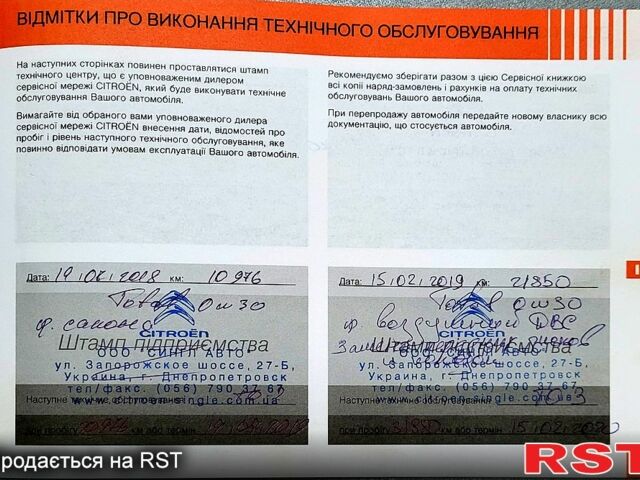 ВІДМІТКИ ПРО ВИКОНАННЯ ТЕХНІЧНОГО ОБСЛУГОВУВАННЯ
На наступних сторінках повинен проставлятися штамп
технічного центру, що є уповноваженим дилером
сервісної мережі CITROËN, який буде виконувати технічне
обслуговування Вашого автомобіля.
Вимагайте від обраного вами уповноваженого дилера
сервісної мережі CITROËN внесення дати, відомостей про
пробіг і рівень наступного технічного обслуговування, яке
повинно відповідати умовам експлуатації Вашого автомобіля.
Рекомендуємо зберігати разом з цією Сервісної книжкою
всі копії наряд-замовлень і рахунків на оплату технічних
обслуговувань Вашого автомобіля.
При перепродажу автомобіля передайте новому власнику всю
документацію, що стосується автомобіля.
Дата: 19.07.2018 км: 10976
Тотал 0w30
ф. салона
CITROËN
Штамп підприємства
ООО "СИНГЛ АВТО"
ул. Запорожское шоссе, 27-Б,
Украина, г. Днепропетровск
тел/факс. (056) 790 37 67
Наступне технічне обслуговування
www.citroen-single.com.ua
км або термін
Дата: 15.02.2019 км: 21850
Тотал 0w30
ф. воздушный ДВС
CITROËN
Штамп підприємства
ул. Запорожское шоссе, 27-Б,
Украина, г. Днепропетровск
тел/факс. (056) 790 37 67
Наступне технічне обслуговування
www.citroen-single.com.ua
при пробігу 31850 км або термін 15.02.2020
родається на RST
RST